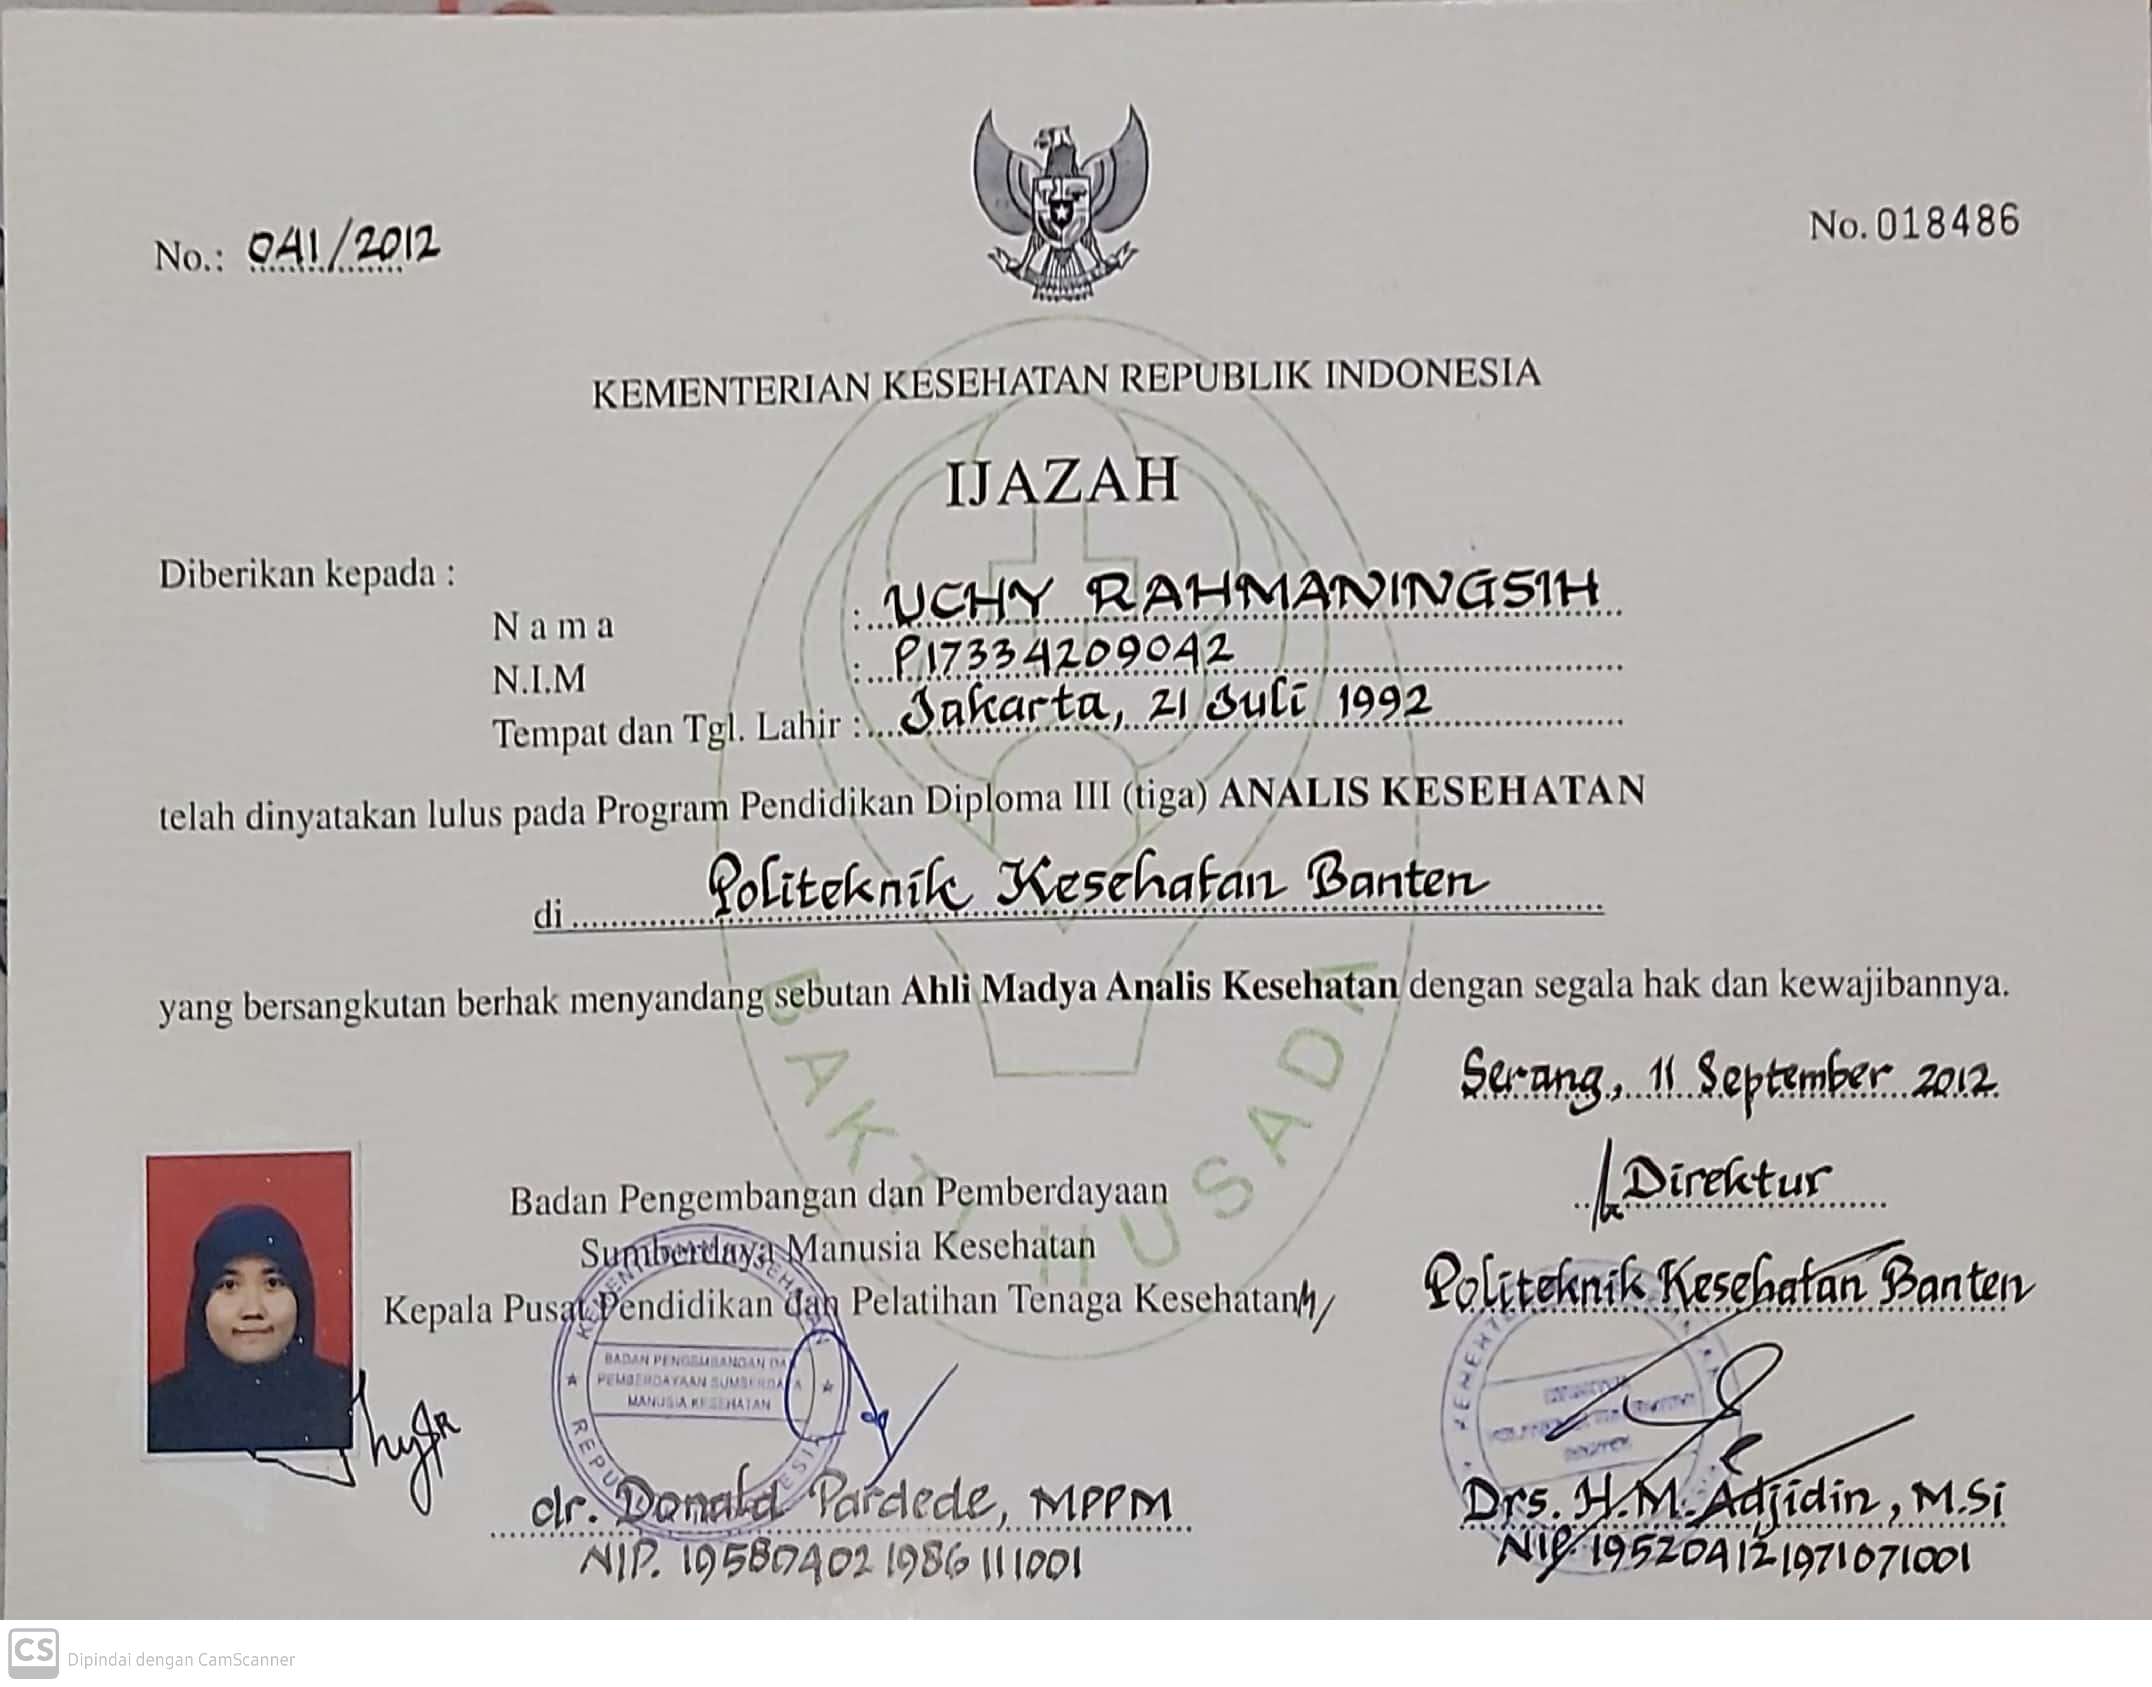 No.: 041/2012
No. 018486
KEMENTERIAN KESEHATAN REPUBLIK INDONESIA
IJAZAH
Diberikan kepada :
Nama : UCHY RAHMANINGSIH
N.I.M : P17334209042
Tempat dan Tgl. Lahir : Jakarta, 21 Juli 1992
telah dinyatakan lulus pada Program Pendidikan Diploma III (tiga) ANALIS KESEHATAN
di Politeknik Kesehatan Banten
yang bersangkutan berhak menyandang sebutan Ahli Madya Analis Kesehatan dengan segala hak dan kewajibannya.
BAKTI HUSADA
Serang, 11 September 2012
Direktur
Politeknik Kesehatan Banten
Badan Pengembangan dan Pemberdayaan
Sumberdaya Manusia Kesehatan
Kepala Pusat Pendidikan dan Pelatihan Tenaga Kesehatan
BADAN PENGEMBANGAN DAN
PEMBERDAYAAN SUMBERDAYA
MANUSIA KESEHATAN
dr. Donald Pardede, MPPM
NIP. 195804021986111001
Drs. H.M. Adjidin, M.Si
NIP 195204121971071001
CS Dipindai dengan CamScanner